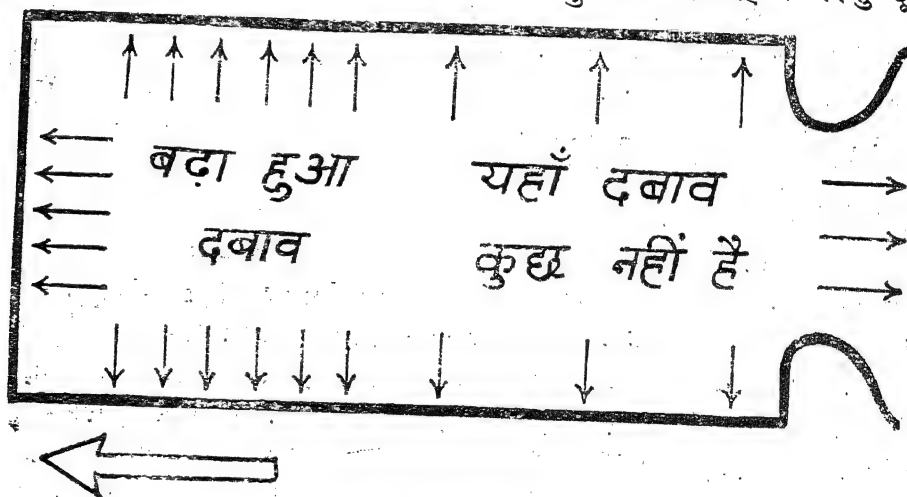 बढ़ा हुआ
दबाव
यहाँ दबाव
कुछ नहीं है